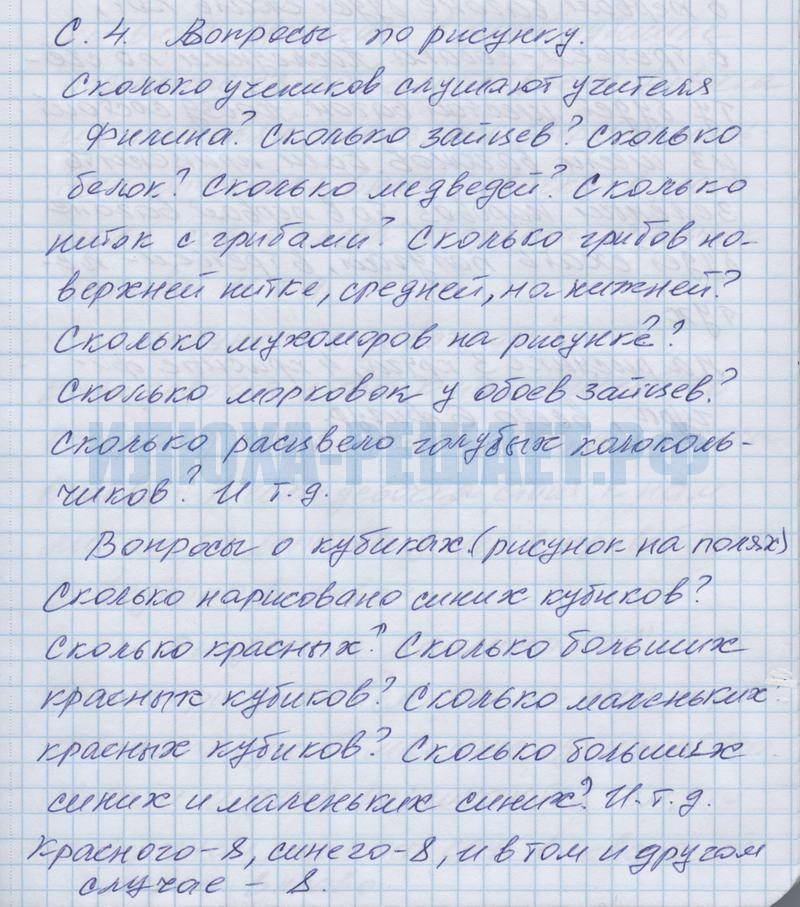 С. 4. Вопросы по рисунку.
Сколько учеников слушают учителя
Филина? Сколько зайцев? Сколько
белок? Сколько медведей? Сколько
ниток с грибами? Сколько грибов на-
верхней нитке, средней, на нижней?
Сколько мухоморов на рисунке?
Сколько морковок у обоев зайцев?
Сколько расцвело голубых колоколь-
ИЛЮХА-РЕШАЕТ.РФ
чиков? И т.д.
Вопросы о кубиках. (рисунок на полях)
Сколько нарисовано синих кубиков?
Сколько красных? Сколько больших
красных кубиков? Сколько маленьких
красных кубиков? Сколько больших
синих и маленьких синих? И.т.д.
Красного-8, синего-8, и в том и другом
случае - 8.